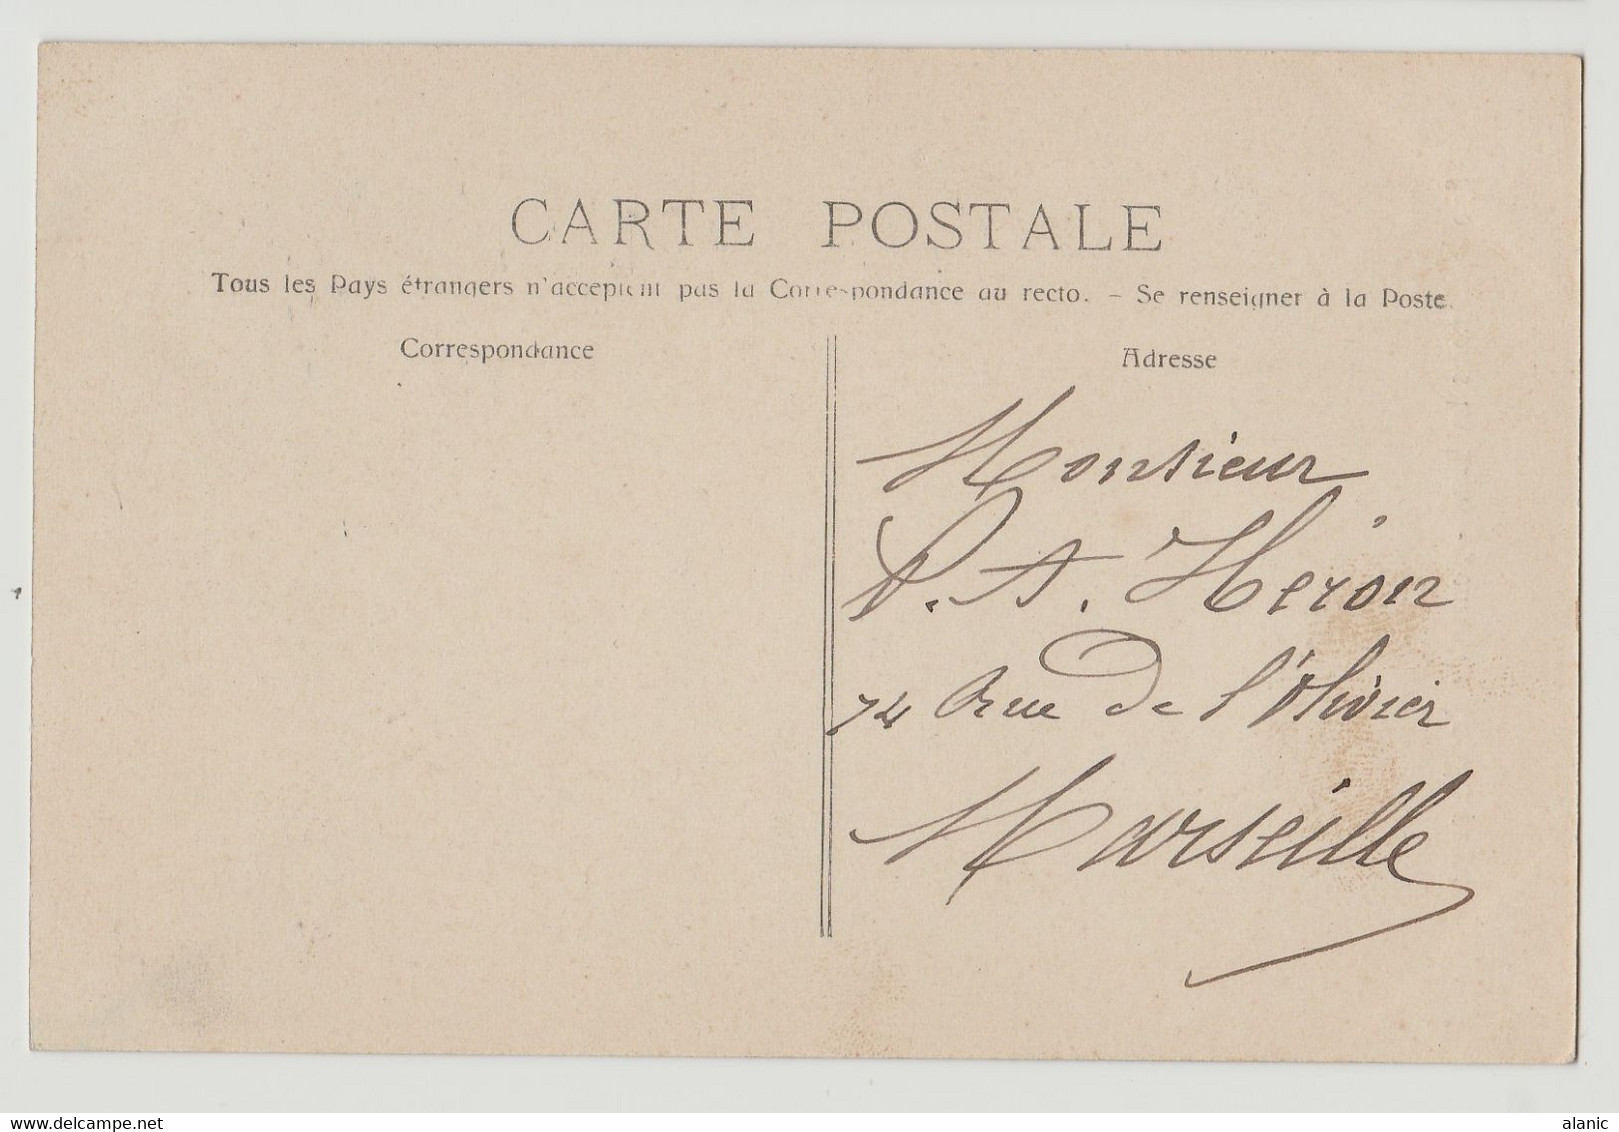 CARTE POSTALE
Tous les Pays étrangers n'acceptent pas la Correspondance au recto. - Se renseigner à la Poste.
Correspondance
Adresse
Monsieur
P. A. Héron
74 Rue de l'Olivier
Marseille
delcampe.net
alanic